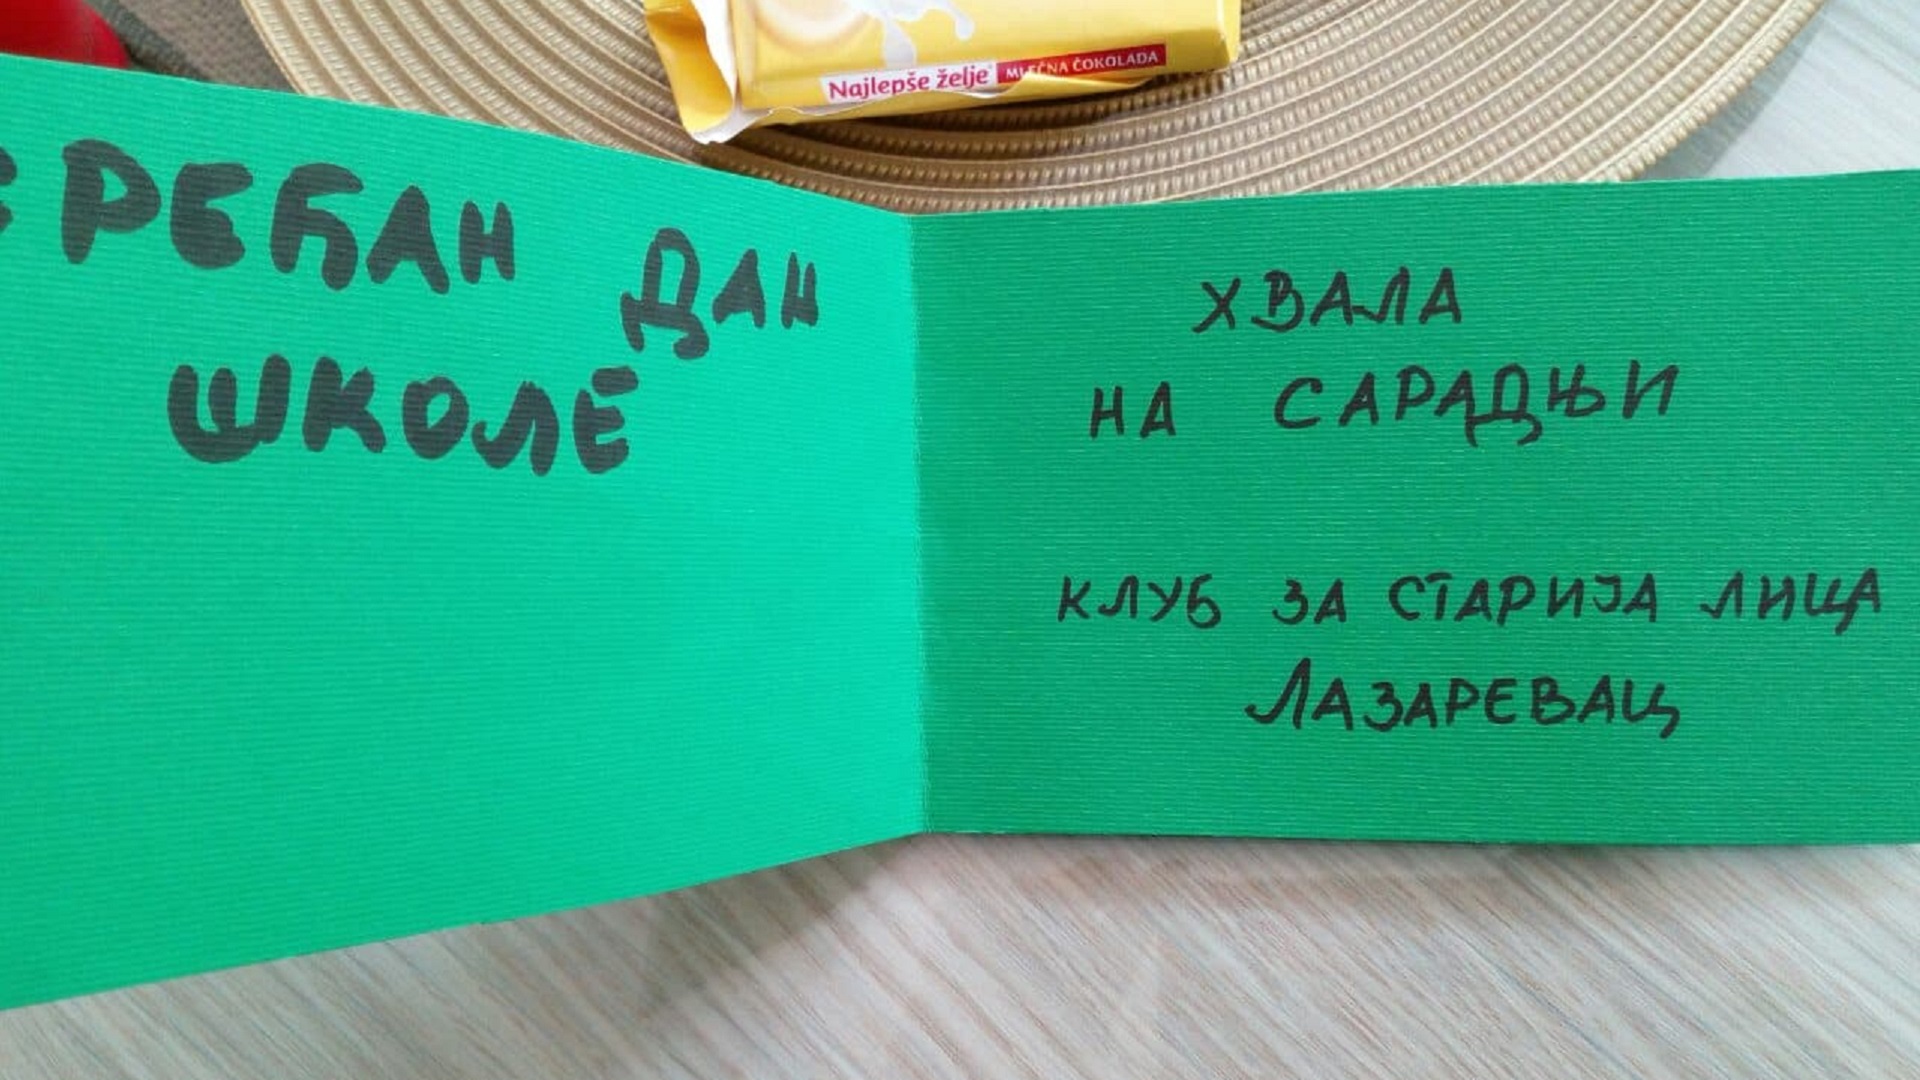 Najlepše želje MLEČNA ČOKOLADA
СРЕЋАН ДАН
ШКОЛЕ
ХВАЛА
НА САРАДЊИ
КЛУБ ЗА СТАРИЈА ЛИЦА
ЛАЗАРЕВАЦ